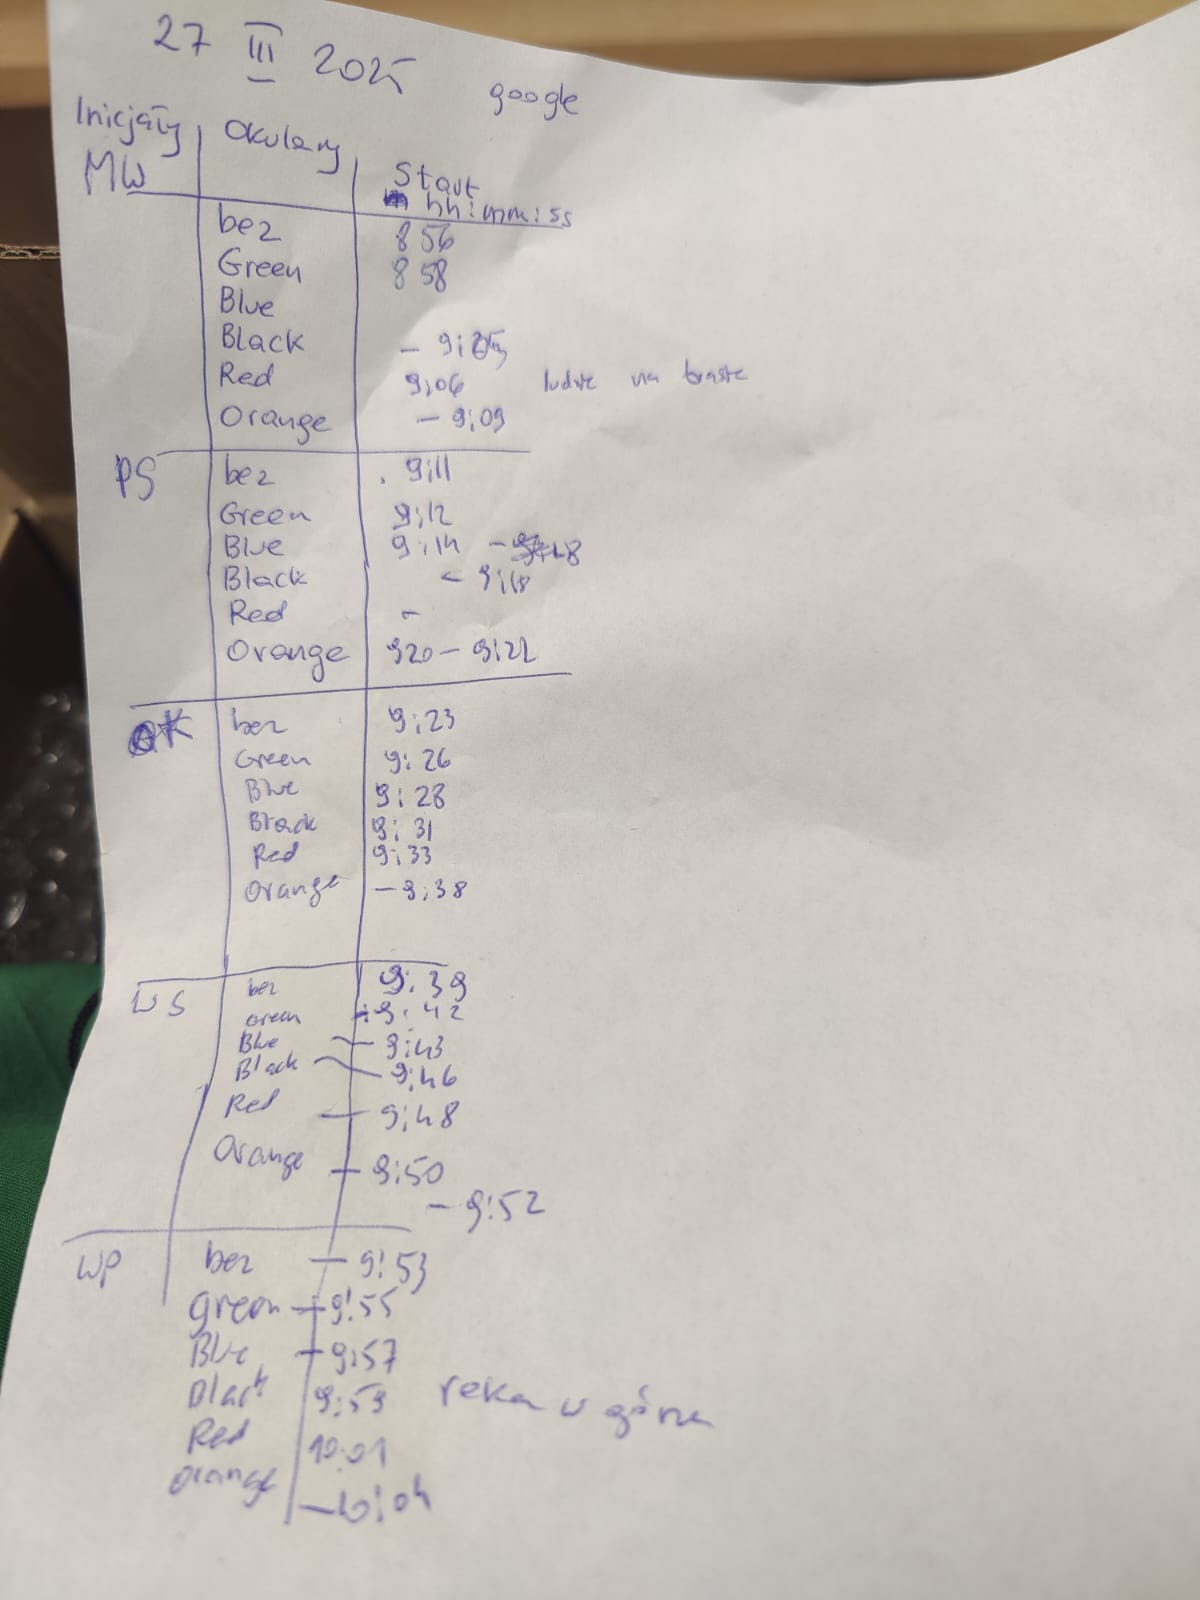 27 III 2025
google
Inicjały Okulary Start
MW hh:mm:ss
bez 8 56
Green 8 58
Blue
Black
Red 9:06 ludzie na trasie
Orange - 9:09
PS bez . 9:11
Green 9:12
Blue 9:14 -
Black - 9:18
Red -
Orange 920 - 9:22
K bez 9:23
Green 9:26
Blue 9:28
Black 9:31
Red 9:33
Orange - 9:38
WS bez 9:39
Green - 9:42
Blue - 9:43
Black - 9:46
Red - 9:48
Orange - 9:50
- 9:52
WP bez - 9:53
green - 9:55
Blue - 9:57
Black 9:59 reka w górze
Red 10:01
orange - 10:04